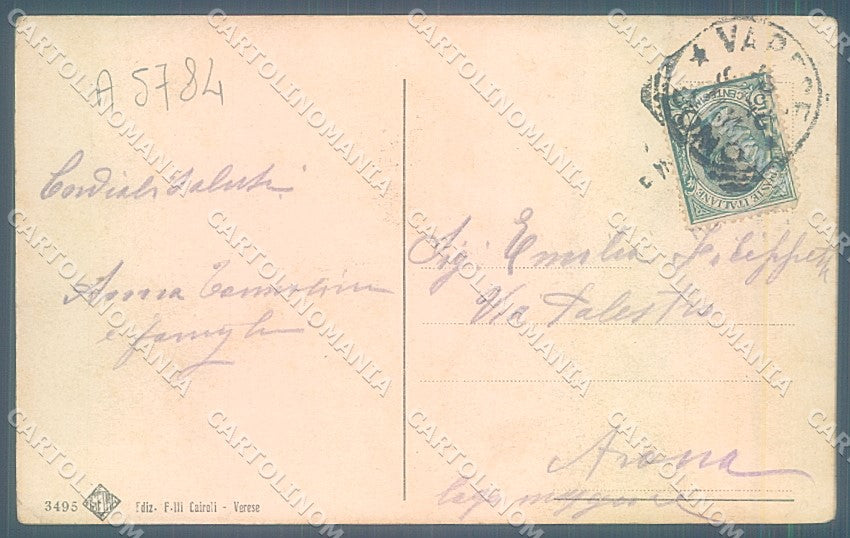 A 5784
Cordiali saluti
Anna
e famiglia
VARESE
CENT
POSTE ITALIANE
Sig. Emilio
Via Palestro
Arona
Lago maggiore
3495
Ediz. F.lli Cairoli - Verese
CARTOLINOMANIA